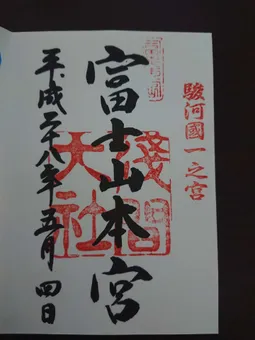 駿河國一之宮
富士山本宮
淺間
大社
平成二十八年五月四日